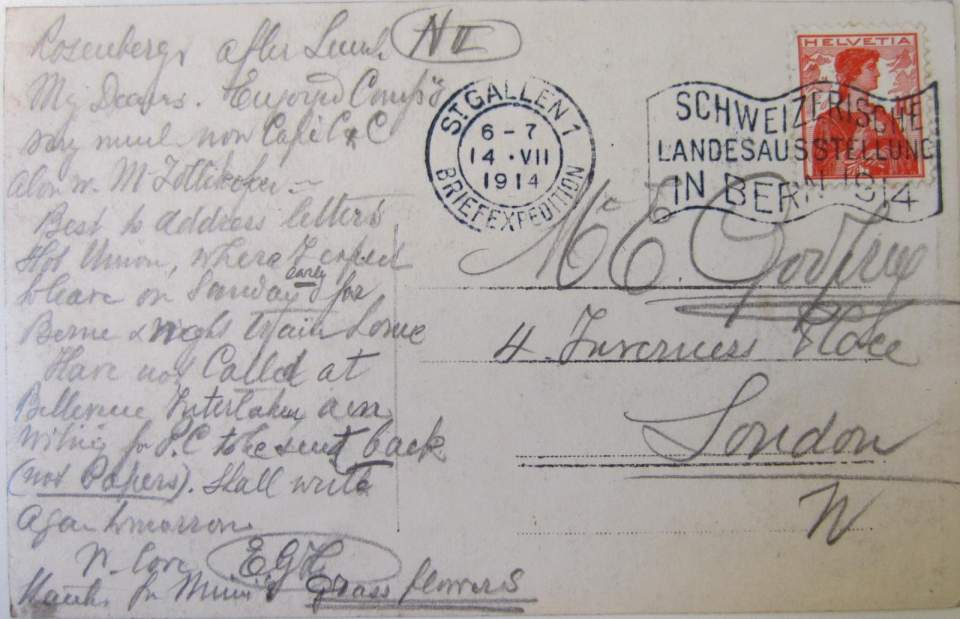 Rosenberg, after Lunch N II
My Dears. Enjoyed
very much now Café C & C
alon w. M
Best to address letters
Hot Union, where I expect
to leave on Sunday early for
Berne & night train home
Have not Called at
Bellevue Interlaken am
writing for P.C to be sent back
(not Papers). Shall write
again tomorrow
W. love EGG
Thanks for Mimi's grass flowers
ST GALLEN 1
6-7
14.VII
1914
BRIEFEXPEDITION
HELVETIA
SCHWEIZERISCHE
LANDESAUSSTELLUNG
IN BERN 1914
Godfrey
4. Inverness Place
London
W